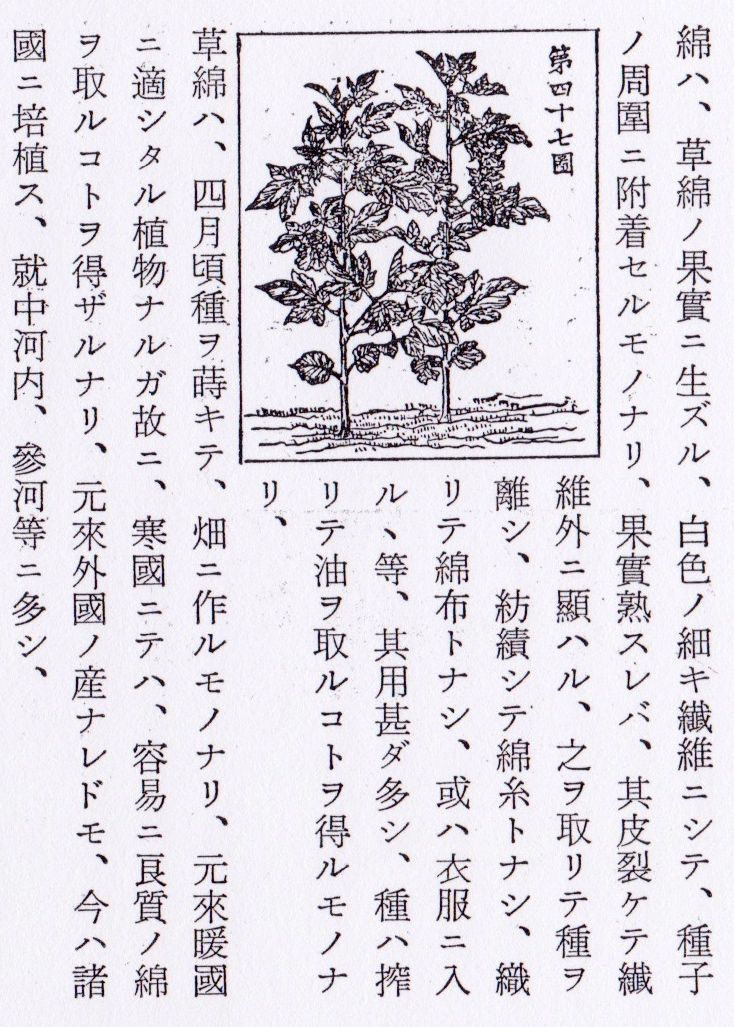 綿ハ、草綿ノ果實ニ生ズル、白色ノ細キ纖維ニシテ、種子
ノ周圍ニ附着セルモノナリ、果實熟スレバ、其皮裂ケテ纖
第四十七圖
維外ニ顯ハル、之ヲ取リテ種ヲ
離シ、紡績シテ綿糸トナシ、織
リテ綿布トナシ、或ハ衣服ニ入
ル丶等、其用甚ダ多シ、種ハ搾
リテ油ヲ取ルコトヲ得ルモノナ
リ、
草綿ハ、四月頃種ヲ蒔キテ、畑ニ作ルモノナリ、元來暖國
ニ適シタル植物ナルガ故ニ、寒國ニテハ、容易ニ良質ノ綿
ヲ取ルコトヲ得ザルナリ、元來外國ノ産ナレドモ、今ハ諸
國ニ培植ス、就中河内、參河等ニ多シ、